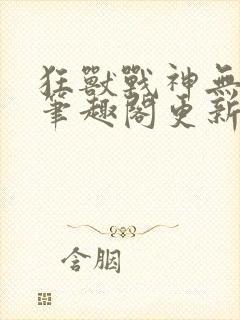 狂獸戰神無
筆趣閣更新
含胭